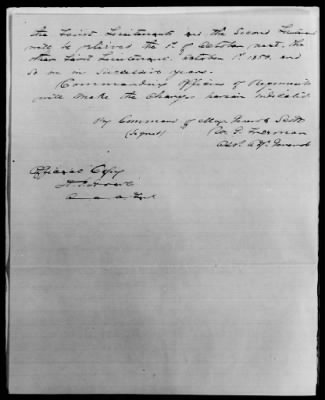 the First Lieutenants and the Second Lieutenants
will be relieved the 1st of October next, the
other First Lieutenant, October 1st 1850, and
so on in successive years.
Commanding Officers of Regiments
will make the changes herein indicated.
By Command of Major General Scott
(Signed)
W. G. Freeman
Asst. Adjt. General
Official Copy